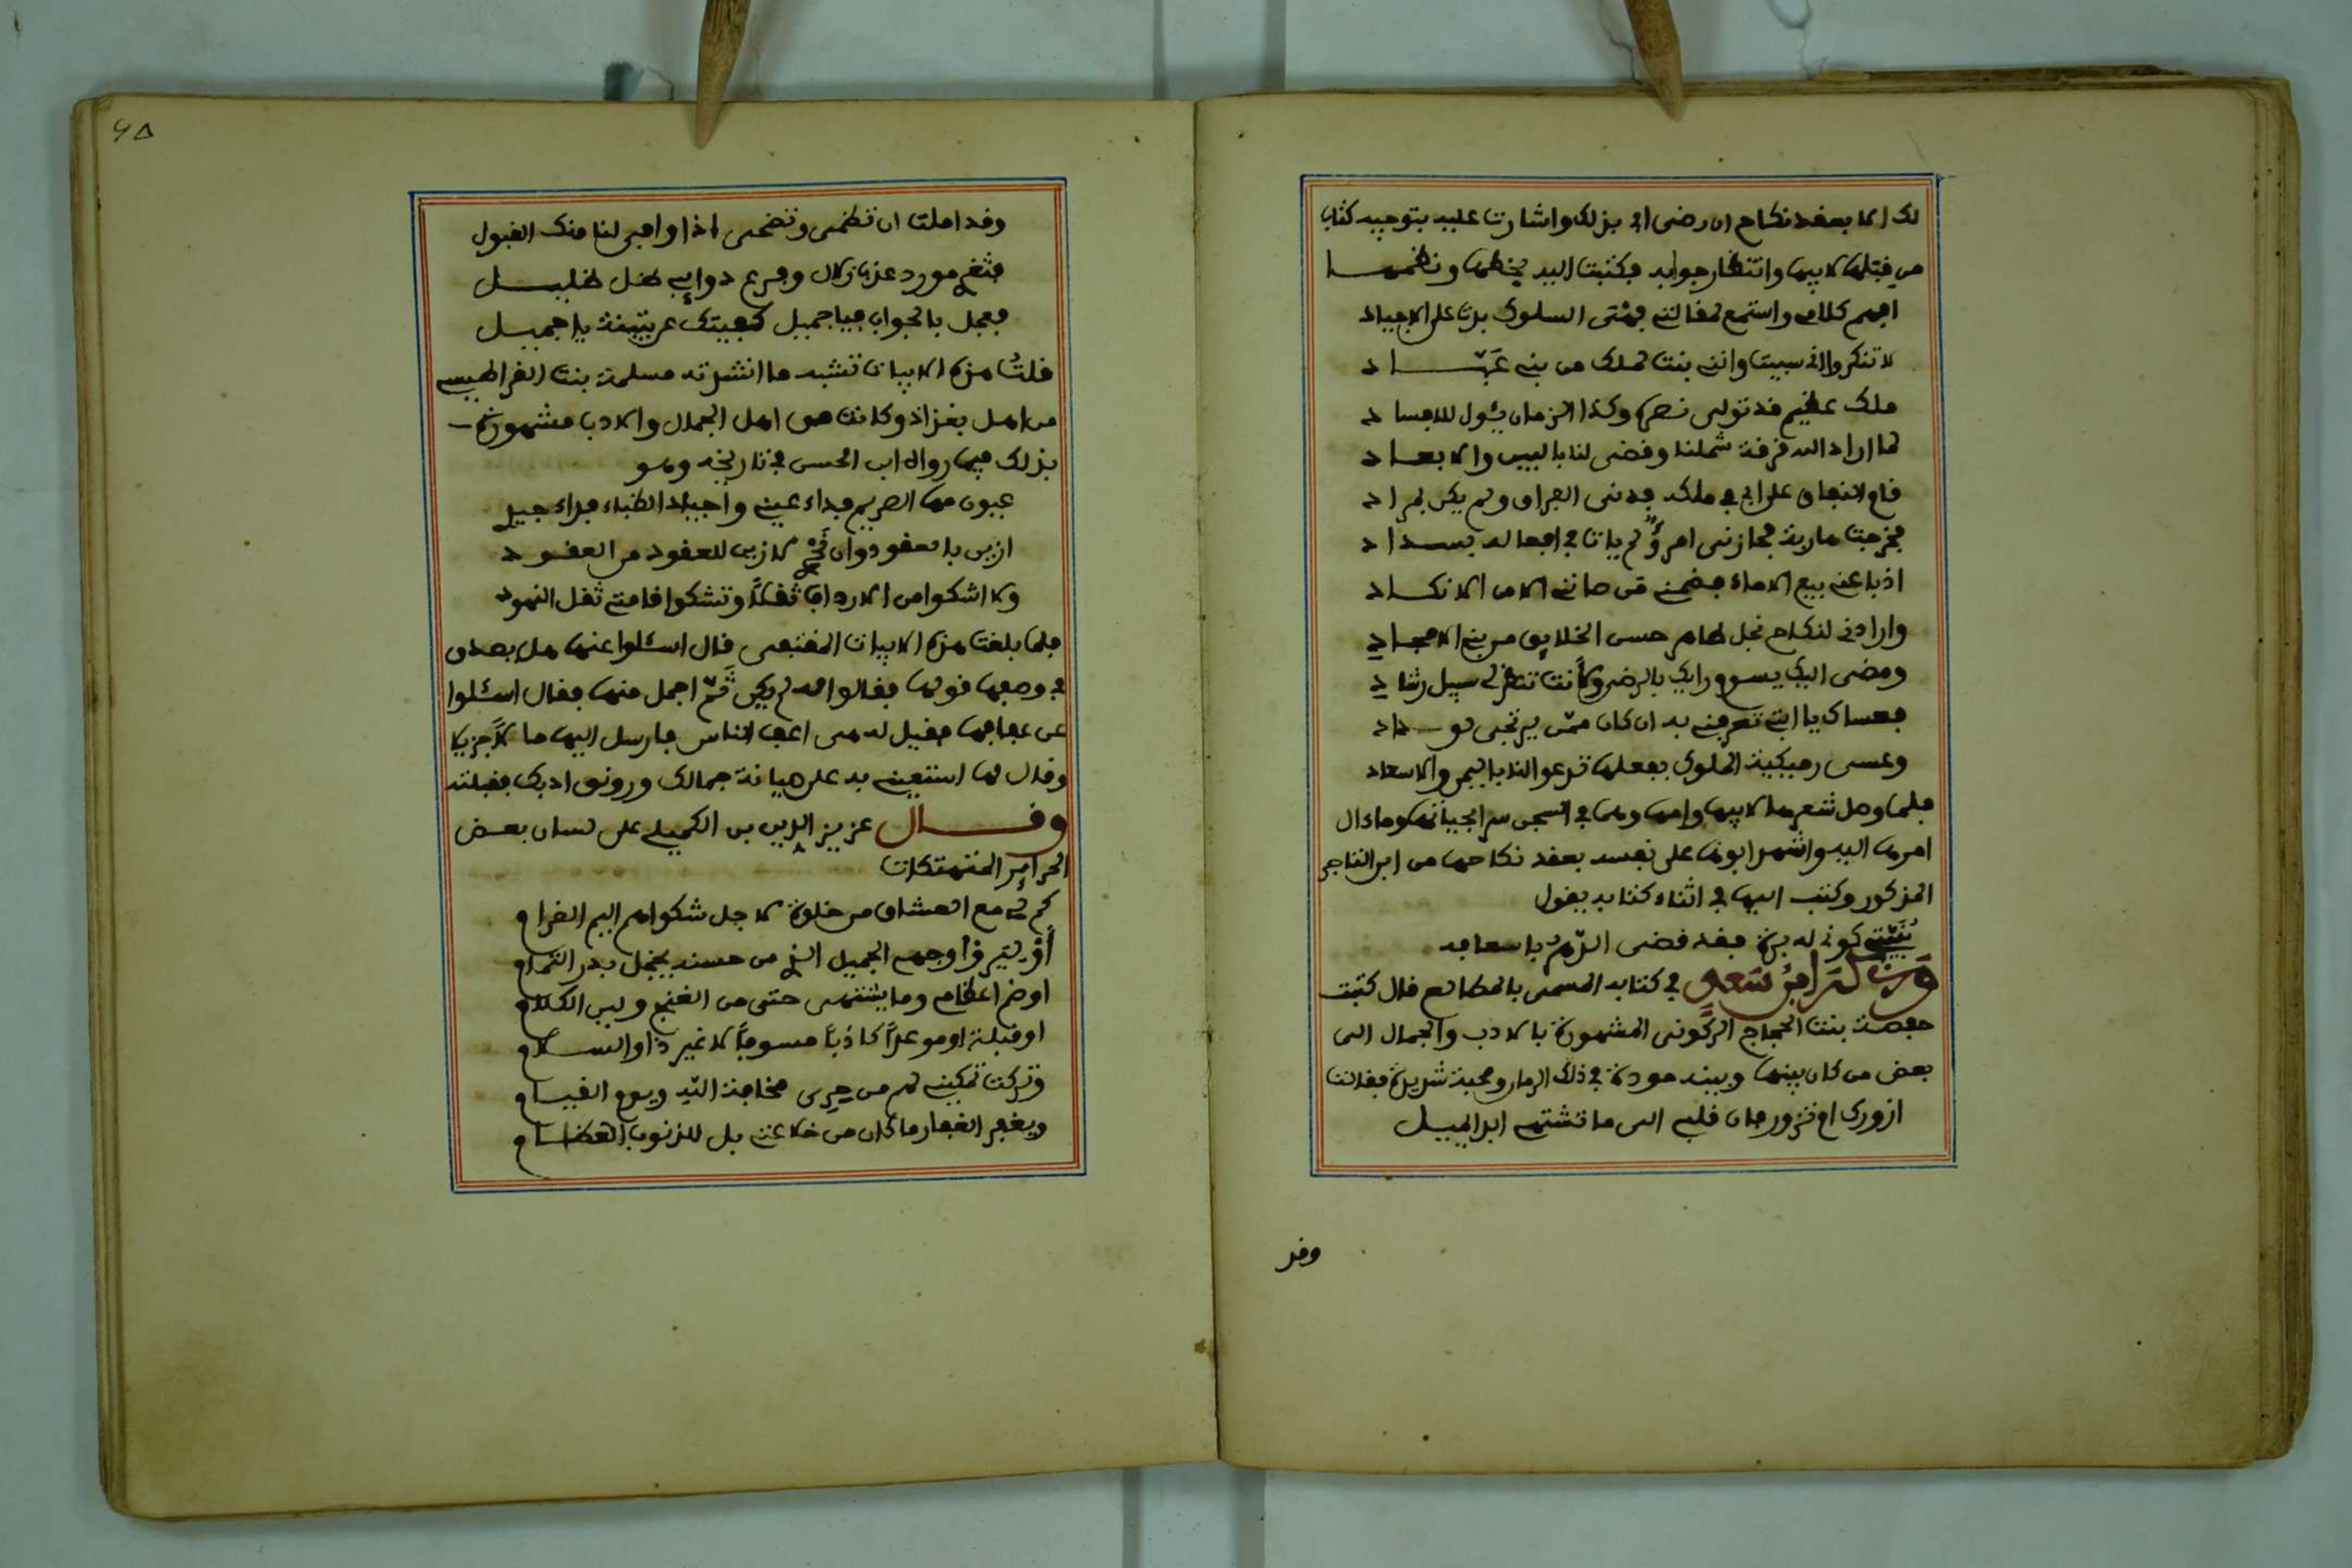 لك الا بعقد نكاح ان رضى ابي بذلك واشارت عليه بتوجيه كتاب
من قبلها لابيها وانتظار جوابه فكتبت اليه بخطها ونظمها
افهم كلامي واستمع لمقالتي فهي السلوك بدت على الاجياد
لا تنكروا اني سبيت وانني بنت لملك من بني عبّاد
ملك عظيم قد تولى عصره وكذا الزمان يئول للافساد
لما اراد الله فرقة شملنا وقضى لنا بالبين والابعاد
قام النفاق على ابي في ملكه فدنى الفراق ولم يكن بمراد
فخرجت هاربة فحازني امرؤ لم يات في افعاله بسداد
اذ باعني بيع الاماء فضمني من صانني الا من الانكاد
وارادني لنكاح نجل طاهر حسن الخلايق من بني الامجاد
ومضى اليك يسوم رايك بالرضى ولأنت تنظر لي سبيل رشاد
فعساك يا ابتي تعرفني به ان كان ممّن يرتجى لوداد
وعسى رميكية الملوك بفعلها تدعوا لنا باليمن والاسعاد
فلما وصل شعرها لابيها وامها وهما في السجن سرا بحياتها وما ءال
امرها اليه واشهد ابوها على نفسه بعقد نكاحها من ابن التاجر
المذكور وكتب اليها في اثناء كتابه يقول
بُنَيّتي كوني له برة فقد قضى الدهر باسعافه
وذكر ابن سعيد في كتابه المسمى بالطالع قال كتبت
حفصة بنت الحجاج الركوني المشهورة بالادب والجمال الى
بعض من كان بينها وبينه مودة في ذلك الزمان ومحبة شديدة فقالت
ازورك ام تزور فان قلبي الى ما تشتهي ابدا يميل
وقد
٩٥
وقد املت ان تظمى وتضحى اذا وافى لنا منك القبول
فثغري مورد عذب زلال وفرع ذوايبي ظل ظليل
فعجل بالجواب فيا جميل كفيتك عن بثينة يا جميل
قلتُ هذه الابيات تشبه ما انشدته مسلمة بنت القراطيسي
من اهل بغداذ وكانت من اهل الجمال والادب مشهورة
بذلك فيما رواه ابن الحسن في تاريخه وهو
عيون مها الصريم فداء عيني واجياد الظباء فداء جيد
ازين بالعقود وان نحري لازين للعقود من العقود
ولا اشكوا من الارداف ثقلاً وتشكوا قامتي ثقل النهود
فلما بلغت هذه الابيات المقتفى قال اسئلوا عنها هل يصدق
في وصفها قولها فقالوا له لم يكن ثَمّ اجمل منها فقال اسئلوا
عن عفافها فقيل له من اعف الناس فارسل اليها مالاً جزيلا
وقال لها استعيني به على صيانة جمالك ورونق ادبك فقبلته
وقال عزيز الدين بن الكميلي على لسان بعض
الحراير المتهتكات
كم لي مع العشاق من خلوة لاجل شكواهم اليم الغرام
أو ليَروا وجهي الجميل الذي من حسنه يخجل بدر التمام
او ضم اعظامي وما يشتهى حتى من الغنج ولين الكلام
او قبلة او موعداً كاذباً مسوفاً لا غير ذا والسلام
وتركت تمكيني لهم من حِرى مخافة الله ويوم القيام
ويغفر الغفار ما كان من خلاعتي بل للذنوب العظام